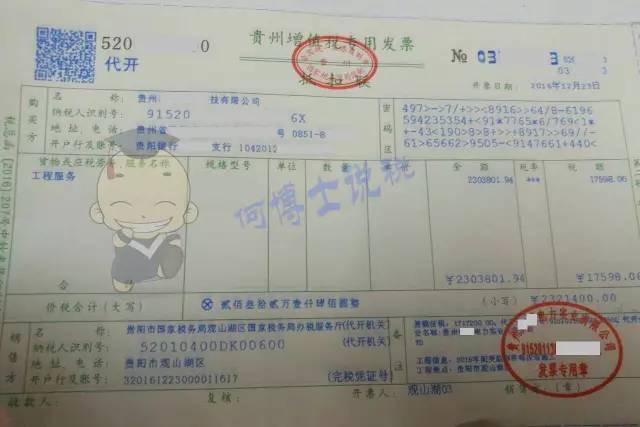 520 0
代开
贵州增值税专用发票
№ 03 3
03 3
开票日期：2016年12月23日
购买方
名 称：贵州 技有限公司
纳税人识别号：91520 6X
地 址、电 话：贵州省 号 0851-8
开户行及账号：贵阳银行 支行 1042012
密码区
497>->7/+>><8916>>64/8-6196
594235354+<91*7765*6/769<1*
+-43<190>8>>+>8917>>69//-
61>65662>9505-<9147661+440<
货物或应税劳务、服务名称 规格型号 单位 数量 单价 金额 税率 税额
工程服务 2303801.94 *** 17598.06
何博士说税
合 计 ¥2303801.94 ¥17598.06
价税合计（大写） ⊗贰佰叁拾贰万壹仟肆佰圆整 （小写）¥2321400.00
销售方
名 称：贵阳市国家税务局观山湖区国家税务局办税服务厅(代开机关)
纳税人识别号：52010400DK00600 (代开机关)
地 址、电 话：贵阳市观山湖区
开户行及账号：320161223000011617 (完税凭证号)
备注
电力实业有限公司
发票专用章
收款人： 复核： 开票人：观山湖03 销售方：（章）